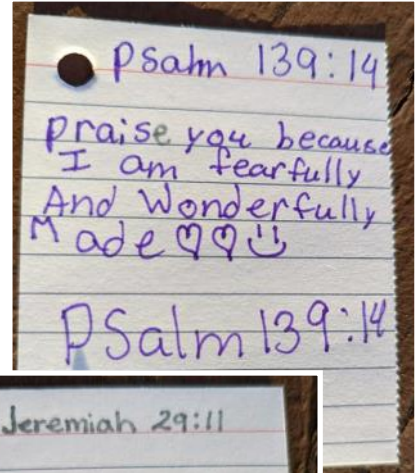 Psalm 139:14
praise you because
I am fearfully
And Wonderfully
Made ♡♡
PSalm 139:14
Jeremiah 29:11